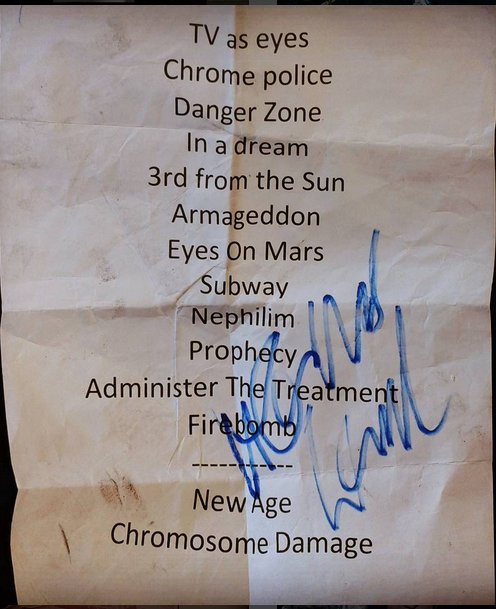 TV as eyes
Chrome police
Danger Zone
In a dream
3rd from the Sun
Armageddon
Eyes On Mars
Subway
Nephilim
Prophecy
Administer The Treatment
Firebomb
------------
New Age
Chromosome Damage